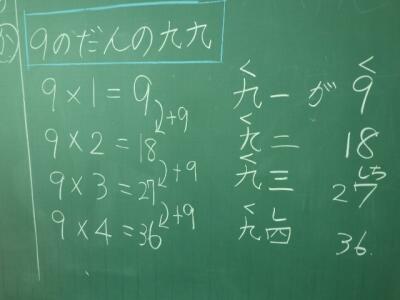 9のだんの九九
9×1=9
+9
9×2=18
+9
9×3=27
+9
9×4=36
く く
九一が 9
く
九二 18
く しち
九三 27
く し
九四 36.